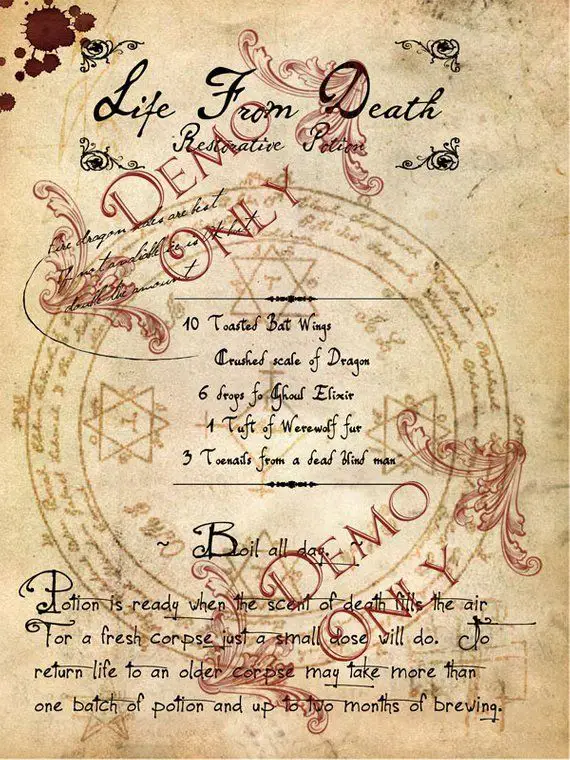 Life From Death
Restorative Potion
DEMO
ONLY
Fire dragon scales are best
If not available ice is ok but
double the amount
10 Toasted Bat Wings
Crushed scale of Dragon
6 drops fo Ghoul Elixir
1 Tuft of Werewolf fur
3 Toenails from a dead blind man
~ Boil all day. ~
DEMO
ONLY
Potion is ready when the scent of death fills the air
For a fresh corpse just a small dose will do. To
return life to an older corpse may take more than
one batch of potion and up to two months of brewing.